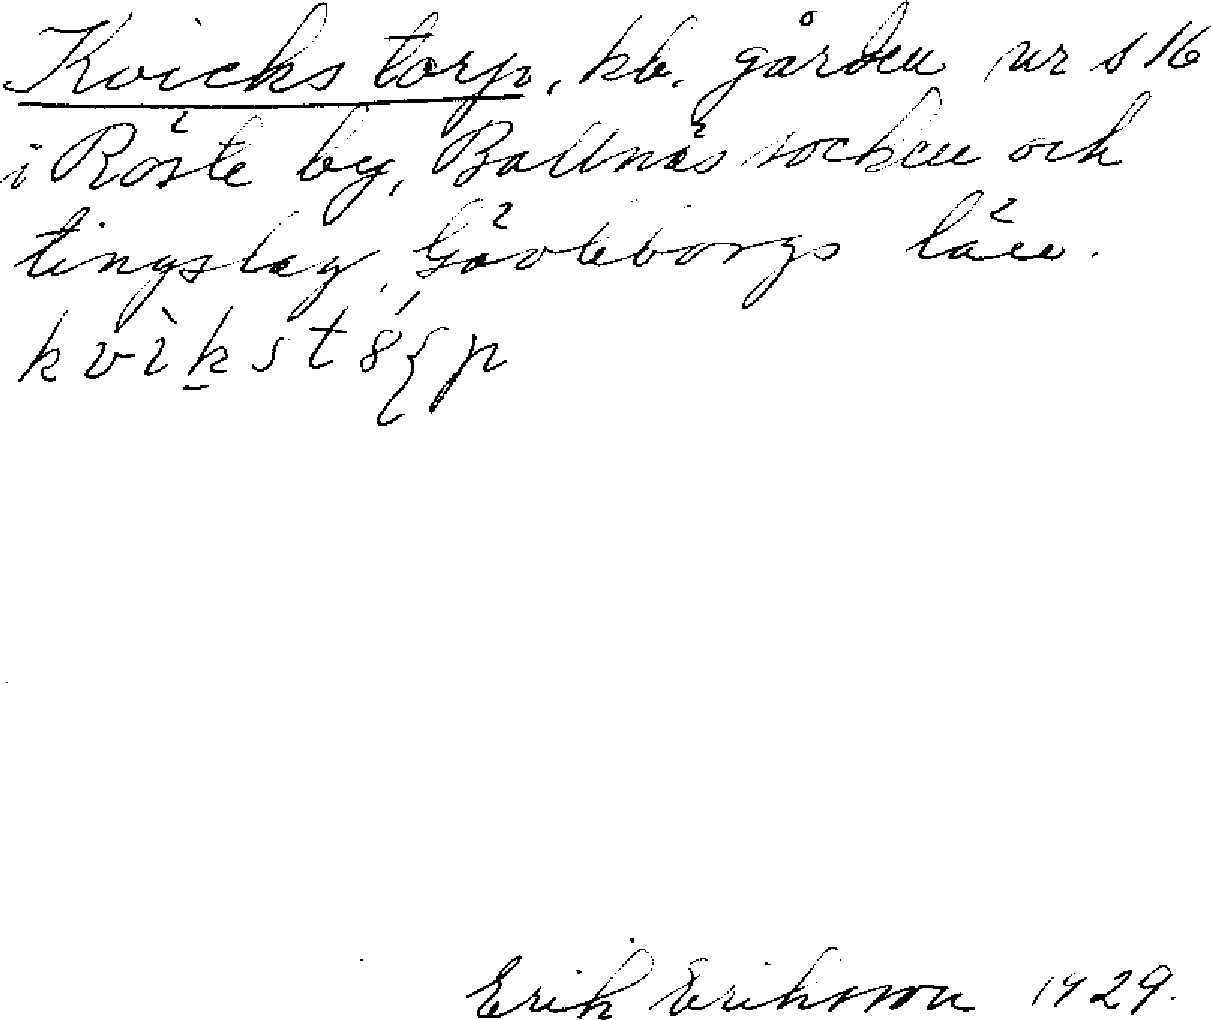 Kvickstorp, kb. gården nr s 16
i Röste by, Bollnäs socken och
tingslag, Gävleborgs län.
Erik Eriksson 1929.